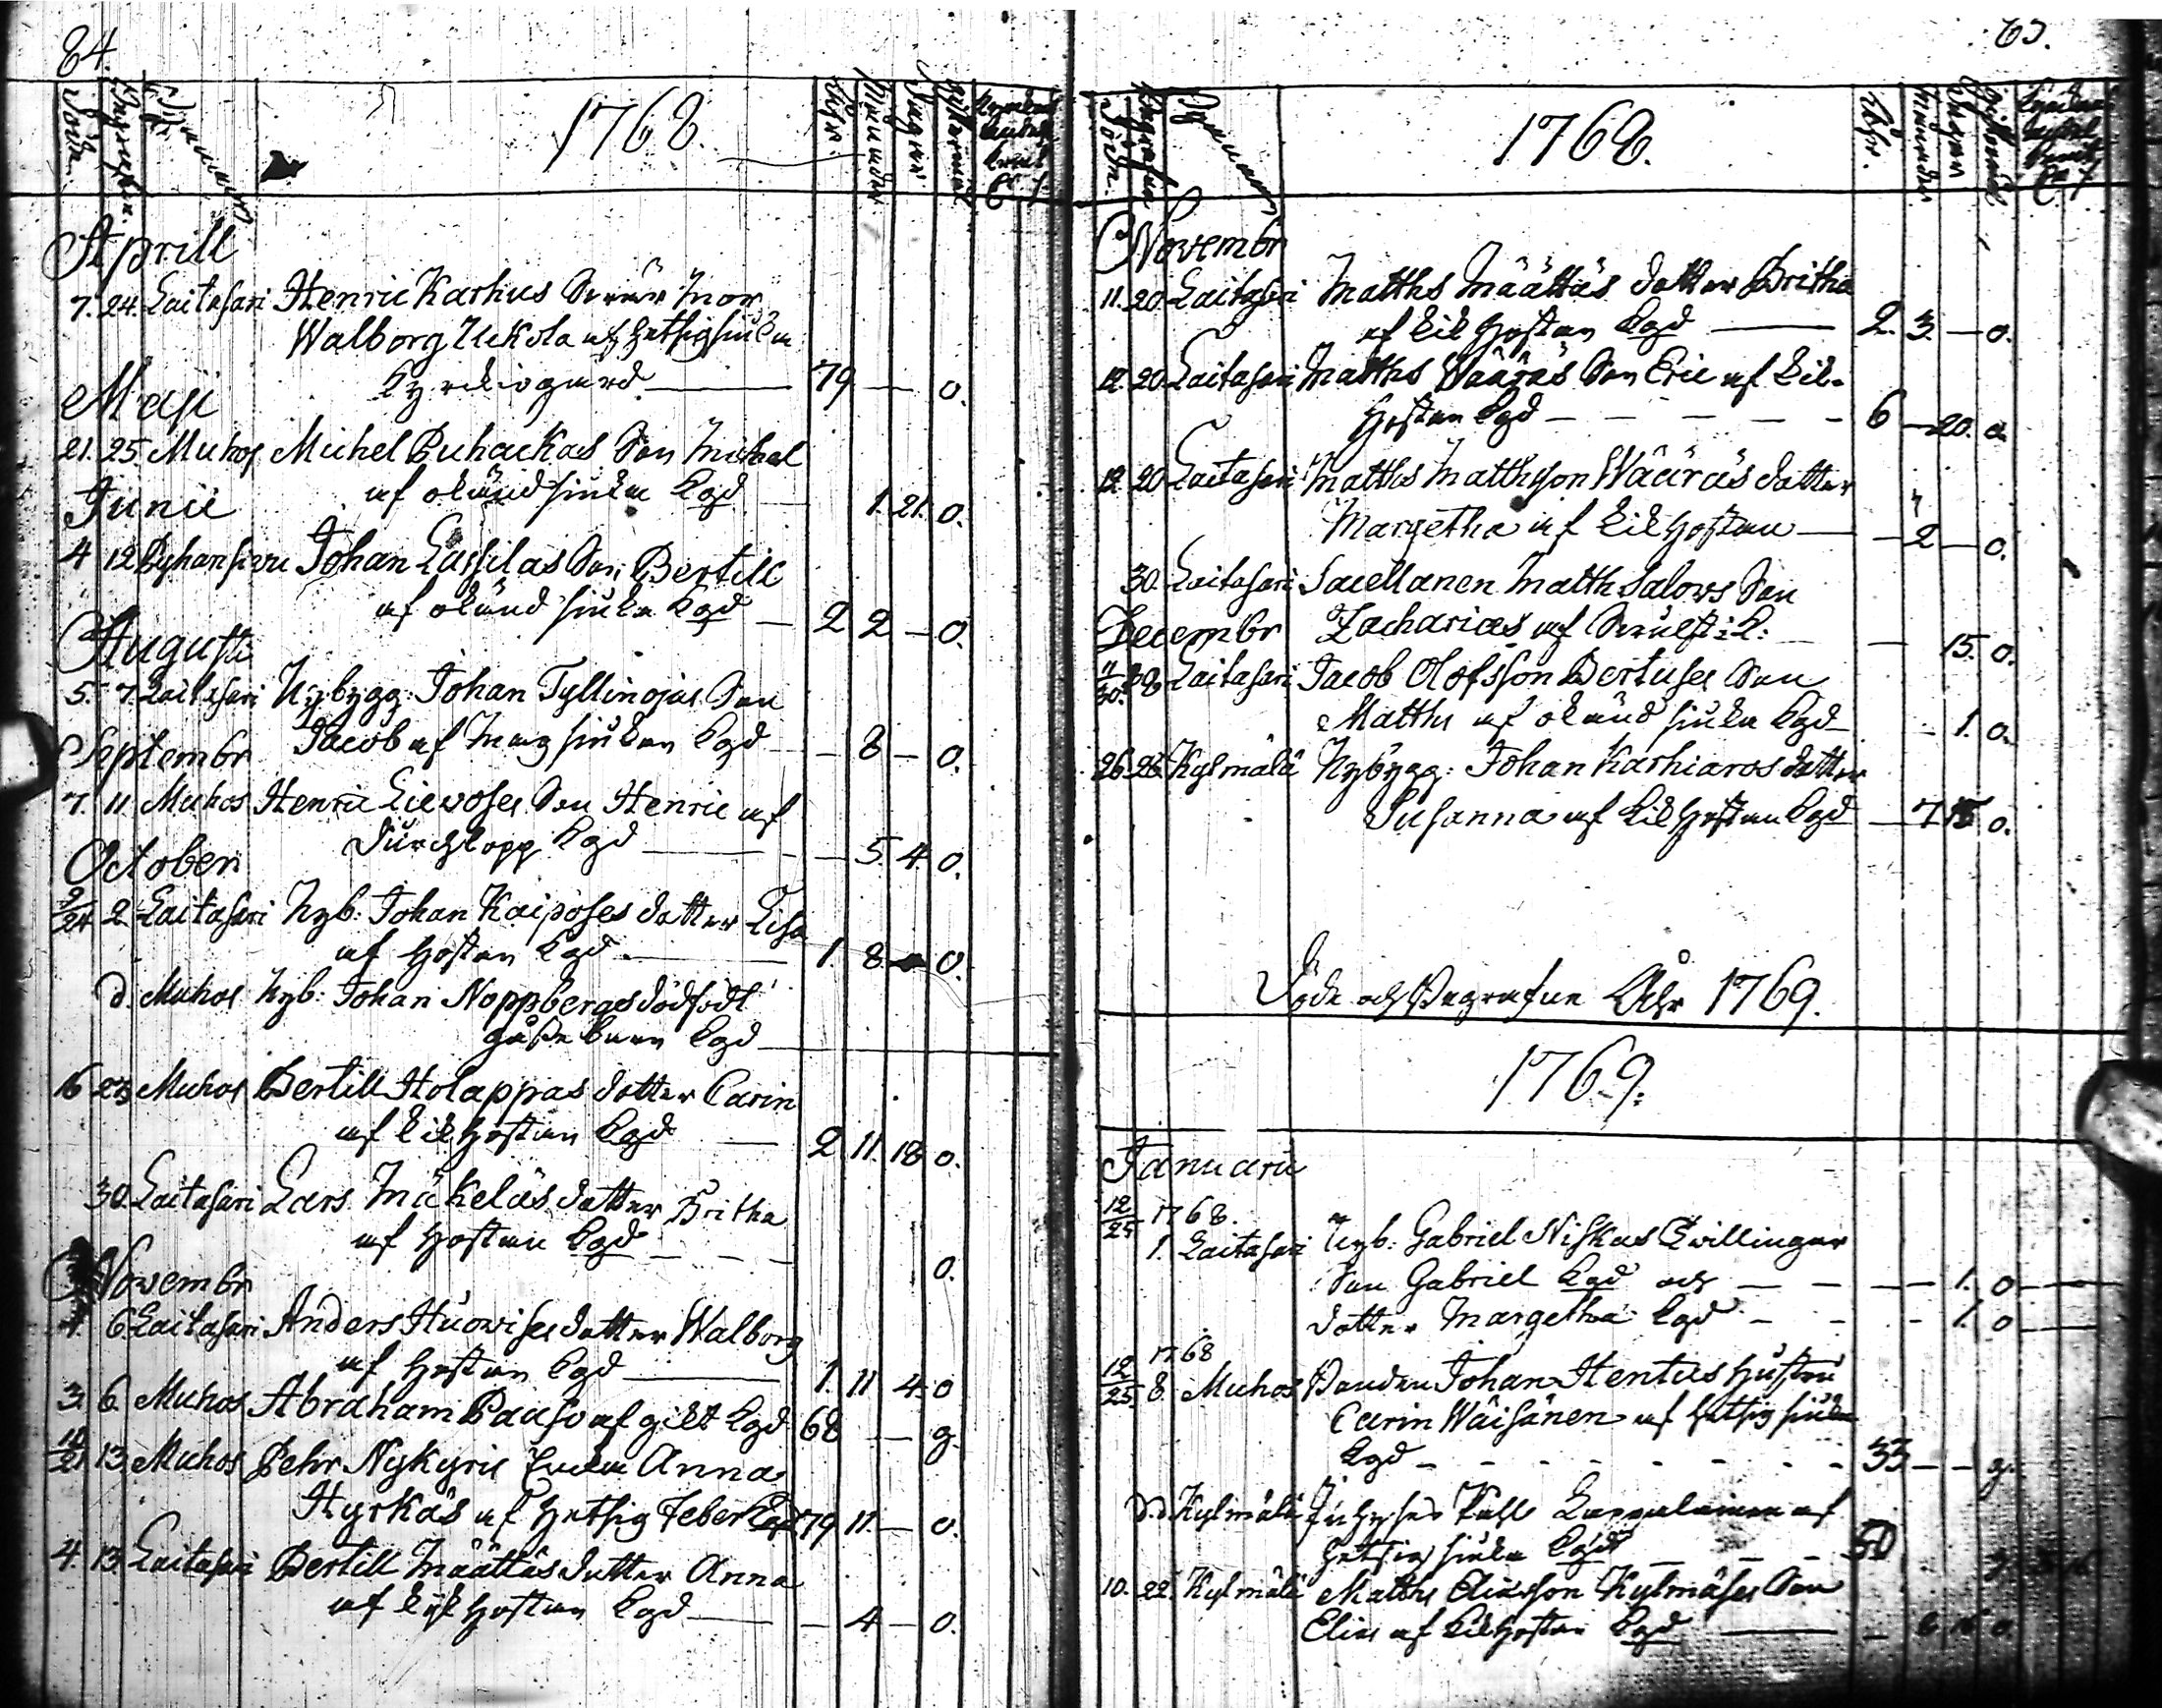 84.
Döde.
Begrafne.
Bynamn
1768.
Åhr.
Månader
Dagar
Aprill
7. 24. Laitasari Henric Karhus Swär Mor
Walborg Uckola af hetsig siuka
Kyrckiogård. 79 — o.
Maji
21. 25. Muhos Michel Puhackas Son Michel
af okänd siuka Kgd 1. 21. o.
Junii
4 12 Johan Lassilas Son Bertill
af okänd siuka Kgd — 2 2 — o.
Augusti
5. 7. Laitasari Nybygg: Johan Tyllinojas Son
Jacob af Mag siukan Kgd — 8 — o.
Septembr
7. 11 Muhos Henric Lievoses Son Henric af
Durchlopp Kgd — 5. 4. o.
October
9/24 2. Laitasari Nyb: Johan Kaiposes dotter Lisa
af Hostan Kgd. 1. 8. o.
d. Muhos Nyb: Johan Noppbergs dödfödt
gåsse barn Kgd
16 23 Muhos Bertill Holappas dotter Carin
af kikhostan Kgd — 2 11. 18 o.
30. Laitasari Lars Mäkeläs dotter Britha
af Hostan Kgd — o.
Novembr
1. 6 Laitasari Anders Huovises dotter Walborg
af Hostan Kgd — 1. 11 4. o
3. 6. Muhos Abraham Pauso af gikt Kgd 68 — g.
10/21 13 Muhos Pehr Nykyris Enka Anna
Hyrkäs af Hetsig feber Kgd 79 11. — o.
4. 13 Laitasari Bertill Määttäs dotter Anna
af kikhostan Kgd — 4 — o.
85.
Döde.
Begrafne
Bynamn
1768.
Åhr.
Månader
Novembr
11. 20 Laitasari Matths Määttäs dotter Britha
af kikhostan Kgd — 2. 3. — o.
12. 20 Laitasari Matths Wääräs Son Eric af kik-
hostan Kgd — 6 — 20. o.
12 20 Laitasari Matths Matthsson Wääräs dotter
Margetha af kikhostan — 2 — o.
30. Laitasari Matth Salovs Son
Decembr Zacharias af — 15. o.
11/30. 18 Laitasari Jacob Olofsson Pertuses Son
Matths af okänd siuka Kgd — 1. o.
26 26 Kylmälä Nybygg: Johan Karhiaros dotter
Susanna af kikhostan Kgd — 7 15 o.
Döde och Begrafne Åhr 1769.
1769.
Januarii
12/25 1768.
1. Laitasari Nyb: Gabriel Niskas Twillingar
Son Gabriel Kgd och — 1. o —
dotter Margetha Kgd — 1. o —
1768
12/25. 8. Muhos Bonden Johan Hentus Hustru
Carin Wäisänen af hetsig siuka
Kgd — 33 — g.
d.d. Kylmälä Påhl af
hetsig siuka Kgd — 50
10. 22. Kylmälä Matths Eliasson Kylmäses Son
Elias af kikhostan Kgd — o